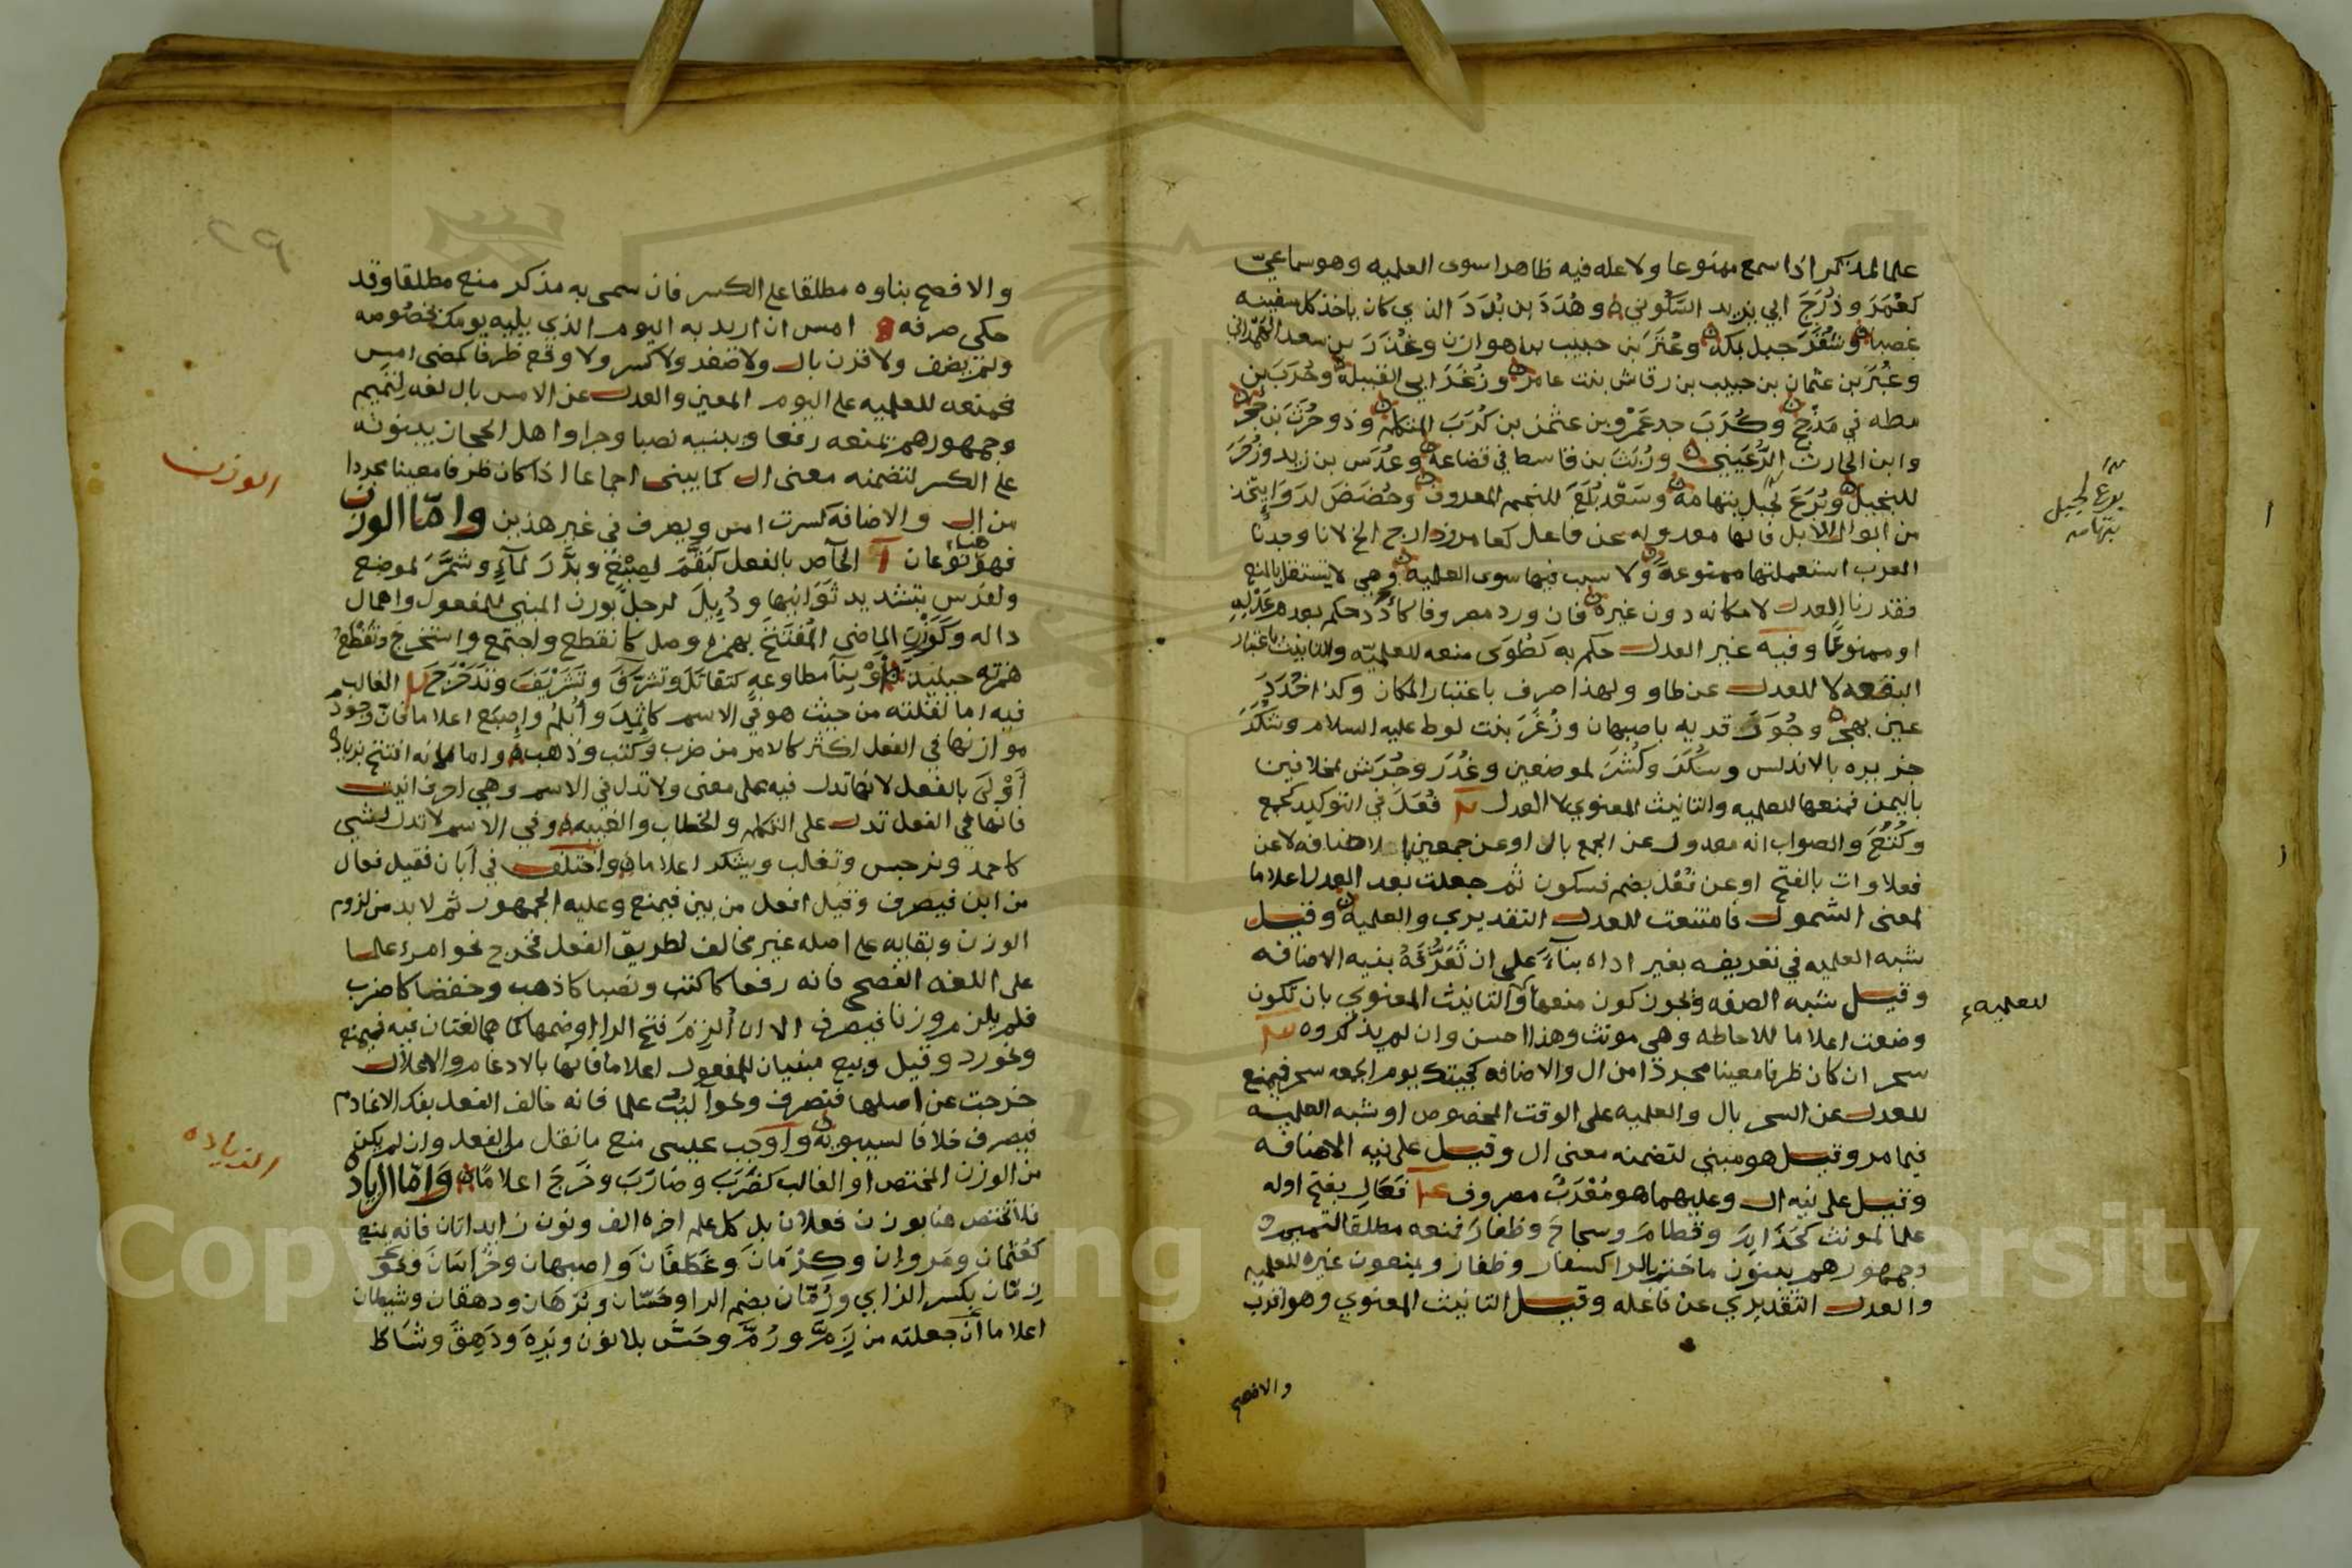 علما لمذكر اذا سمع ممنوعا ولا عله فيه ظاهرا سوى العلميه وهو سماعي
كعُمَرَ وذُرَحَ ابي يزيد السَّكُوني وهُدَدَ بن بُدَدَ الذي كان ياخذ كل سفينه
غصبا جبل بمكه وعُتَرَ بن حبيب بن هوازن وغُدَرَ بن سعد
وعُبَرَ بن عثمان بن حبيب بن رقاش بنت عامر وزُغَرَ ابي القبيله وحُرَبَ بن
مطه في مَذْحِج وكُرَبَ جد عَمْرو بن عثمن بن كُرَبَ المتكلم وذو حُرَثَ بن حجر
وابن الحارث الرُّعَيني وزُبَثَ بن قاسط في قضاعه وعُدَسَ بن زيد وزُفَرَ
للنجيل وبُرَعَ لجبل بتهامه وسَعْد بُلَعَ للنجم المعروف وحُضَضَ لدَوَاء يتخذ
من ابوال الابل فانها معدوله عن فاعل كعامر وذارح الخ لانا وجدنا
العرب استعملتها ممنوعة ولا سبب فيها سوى العلميه وهي لا تستقل بالمنع
فقدرنا العدل لامكانه دون غيره فان ورد مصروفا كأُدَد حكم بعدم عَدْلِهِ
او ممنوعًا وفيه غير العدل حكم به كطُوَى منعه للعلميّه والتانيث باعتبار
البقعه لا للعدل عن طاو ولهذا صرف باعتبار المكان وكذا
عين بهجر وجُوَرَ قريه باصبهان وزُغَرَ بنت لوط عليه السلام
جزيره بالاندلس وسُكَرَ وكُشَرَ لموضعين وغُدَرَ وجُرَش مخلافين
باليمن فمنعها للعلميه والتانيث المعنوي لا العدل ٣ فُعَلَ في التوكيد كجمع
وكُتُعَ والصواب انه معدول عن الجمع بال او عن جمعهن بالاضافه لا عن
فعلاوات بالفتح او عن فُعْل بضم فسكون ثم جعلت بعد العدل اعلاما
لمعنى الشمول فامتنعت للعدل التقديري والعلميه وقيل
شبه العلميه في تعريفه بغير اداه بناءً على ان تَعَرُّفَهُ بنيه الاضافه
وقيل شبه الصفه ويجوز كون منعها والتانيث المعنوي بان تكون
للعلميه
وضعت اعلاما للاحاطه وهي مونث وهذا احسن وان لم يذكروه ٤
سحر ان كان ظرفا معينا مجردًا من ال والاضافه كجيتك يوم الجمعه سحر فيمنع
للعدل عن السحر بال والعلميه على الوقت المخصوص او شبه العلميه
فيما مر وقيل هو مبني لتضمنه معنى ال وقيل على نيه الاضافه
وقيل على نيه ال وعليهما هو مُعْرَبٌ مصروف فَعَالِ بفتح اوله
علما لمونث كحَذَامِ وقطام وسجاح وظفار فمنعه مطلقا التميميون
وجمهورهم يبنون ما ختم بالرا كسفار وظفار ويمنعون غيره للعلميه
والعدل التقديري عن فاعله وقيل التانيث المعنوي وهو اقرب
والافصح
بُرَعَ لجبل
بتهامه
٢٩
والافصح بناوه مطلقا على الكسر فان سمى به مذكر منع مطلقا وقد
حكى صرفه ٥ امس ان اريد به اليوم الذي يليه يومك بخصوصه
ولم يضف ولا قرن بال ولا صغر ولا كسر ولا وقع ظرفا كمضى امس
فمنعه للعلميه على اليوم المعين والعدل عن الامس بال لغه لتميم
وجمهورهم يمنعه رفعا ويبنيه نصبا وجرا واهل الحجاز يبنونه
على الكسر لتضمنه معنى ال كما يبنى اجماعا اذا كان ظرفا معينا مجردا
من ال والاضافه كسرت امس ويصرف في غير هذين وامّا الوزن
الوزن
فهو هنا نوعان آ الخاص بالفعل كبَقَّمَ لصِبْغ وبذَّرَ لماءٍ وشمَّرَ لموضع
ولفرس بتشديد ثَوَانيها ودُيِلَ لرجل بوزن المبني للمفعول واهمال
داله وكَوَزْنِ الماضي المُفْتَتَح بهمزه وصل كانقطع واجتمع واستخرج وتقطع
همزته حينيذ أَوْ بنا مطاوعه كتقاتَلَ وتشَرَّقَ وتَشَرْيَفَ وتَدَحْرَجَ الغالب
فيه اما لقلته من حيث هو في الاسم كاثمِدَ وأُبلُم وإصبَع اعلاما فان وجود
موازنها في الفعل اكثر كالامر من ضرب وكتب وذهب واما لانه افتتح بزياده
أَوْلَى بالفعل لانها تدل فيه على معنى ولا تدل في الاسم وهي احرف انيت
فانها في الفعل تدل على التكلم والخطاب والغيبه وفي الاسم لا تدل لشي
كاحمد ونرجس وتغلب ويشكر اعلاما واختلف في ابان فقيل فعال
من ابن فيصرف وقيل افعل من بين فيمنع وعليه الجمهور ثم لا بد من لزوم
الوزن وبقايه على اصله غير مخالف لطريق الفعل فخرج نحو امرء علما
على اللغه الفصحى فانه رفعا كاكتب ونصبا كاذهب وخفضا كاضرب
فلم يلزم وزنا فيصرف الا ان أُلزِمَ فتح الرا او ضمها كما هما لغتان فيه فيمنع
ونحو رد وقيل وبيع مبنيان للمفعول اعلاما فانها بالادغام والاعلال
خرجت عن اصلها فتصرف ونحو ألبُبٌ علما فانه خالف الفعل بفك الادغام
فيصرف خلافا لسيبويه واوجب عيسى منع ما نقل من الفعل وان لم يكن
من الوزن المختص او الغالب كضَرَبَ وضارَبَ وخَرَجَ اعلامًا وامّا الزياده
الزياده
فلا تختص هنا بوزن فعلان بل كل علم اخره الف ونون زايدتان فانه يمنع
كعُثمان ومَروان وكِرْمَان وغَطَفَانَ واصبهان وخُرَاسَانَ ونحو
زِمّان بكسر الزاي ورُمّان بضم الرا وحَسّان وبُرْهَان ودهقان وشيطان
اعلاما ان جعلته من زَمَّ ورُمَّ وحَسَّ بلا نون وبَرِهَ ودَهِقَ وشَاطَ